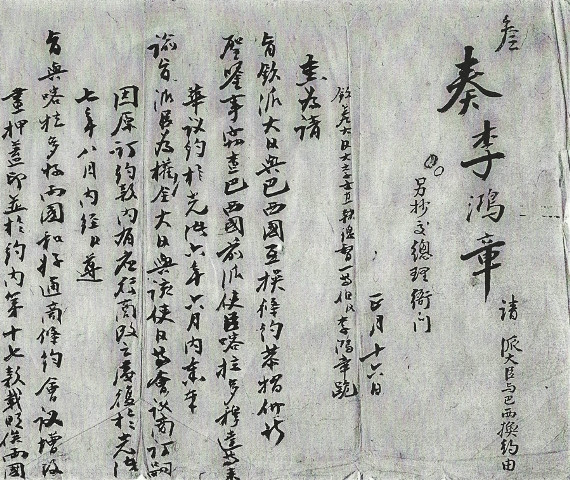 叁
請派大臣与巴西換約由
奏李鴻章
另抄交總理衙門
正月十六日
欽差大臣大學士直隸總督一等伯臣李鴻章跪
奏為請
旨欽派大臣與巴西國互換條約恭摺仰祈
聖鑒事竊查巴西國前派使臣喀拉多穆達等來
華議約於光緒六年六月內奉
諭旨派臣為權全大臣與該使臣等會議商訂嗣
因原訂約款內有應行商改之處復於光緒
七年八月內經臣遵
旨與喀拉多將兩國和好通商條約會議增改
畫押蓋印並於約內第十七款載明俟兩國